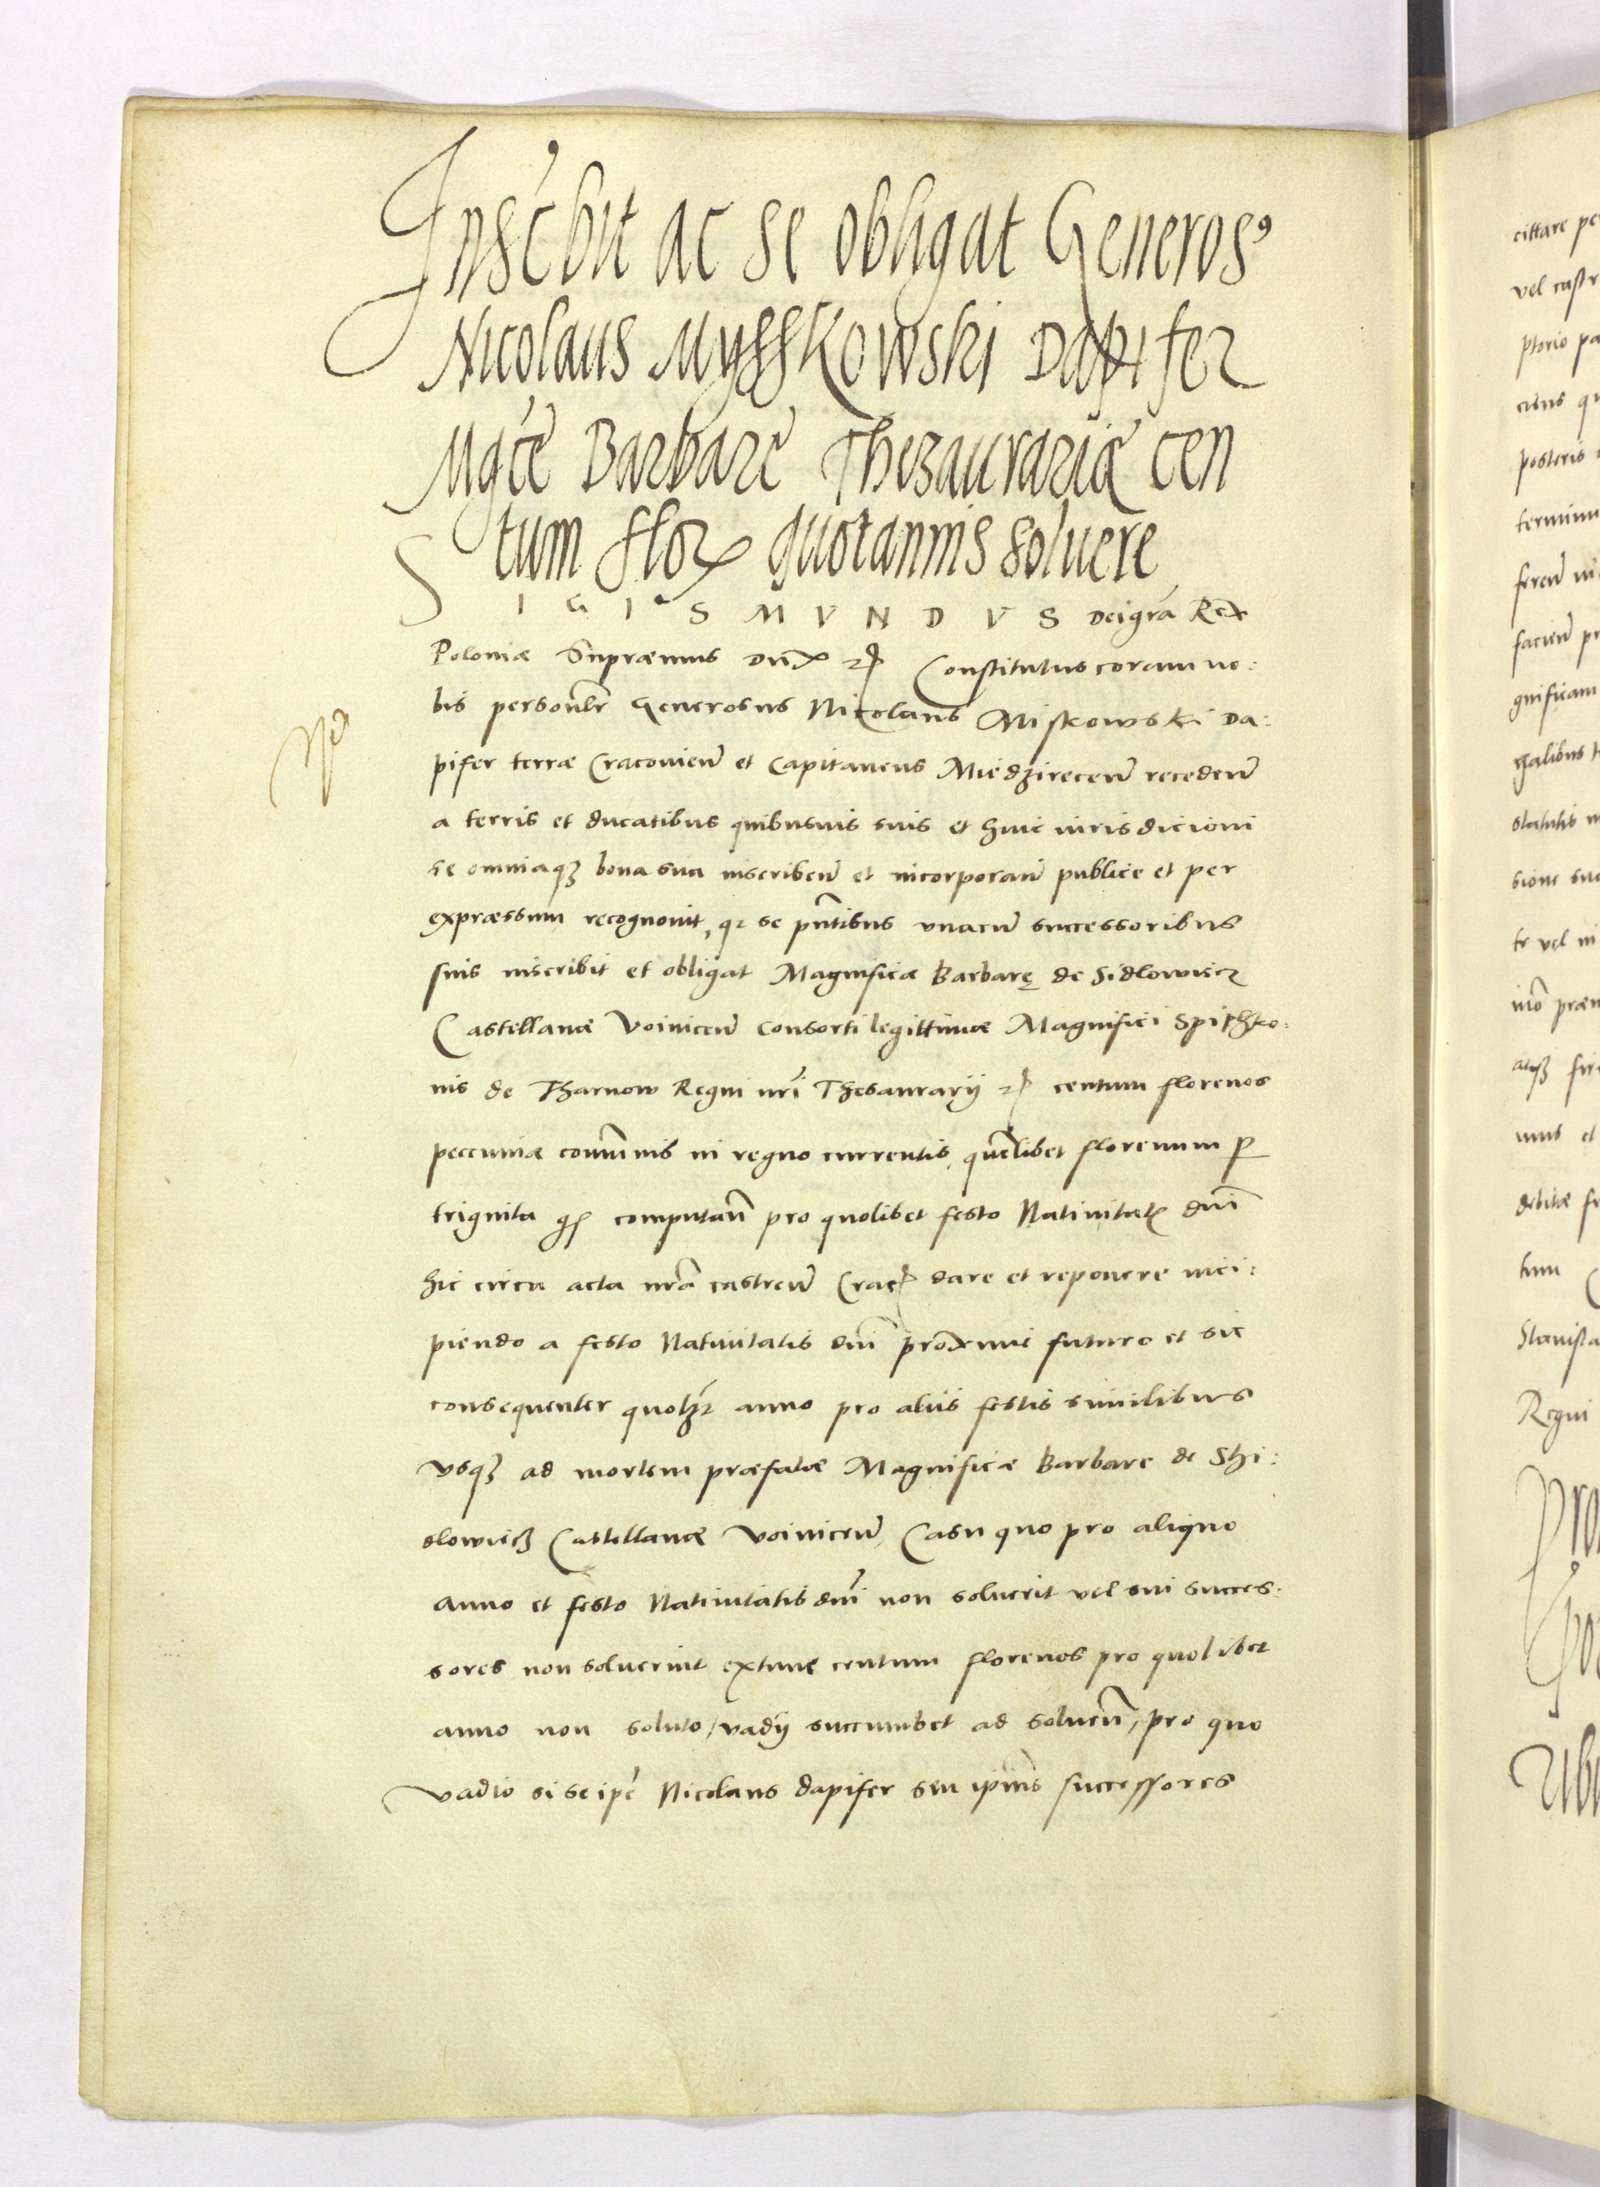 Inscˀbit ac se obligat Generosꝰ
Nicolaus Mysskowski Dapifer
Mgcē Barbarę Thezaurariæ cen
tum flor quotannis soluere
SIGISMVNDVS Dei grā Rex
Poloniæ Supræmus Dux Constitutus coram no:
bis personlr Generosus Nicolaus Miskowski Da:
pifer terræ Cracovien̄ et Capitaneus Miedzirecen̄ receden̄
a terris et ducatibus quibusuis suis et huic iurisdicioni
se omniaqꝫ bona sua inscriben̄ et incorporan̄ publice et per
expræssum recognouit, qꝛ se pn̄tibus vnacu̅ successoribus
suis inscribit et obligat Magnificæ Barbarę de Sidlowiecz
Castellanæ Voinicen̄ Consorti legittimæ Magnifici Spithko:
nis de Tharnow Regni nrī Thesaurarij centum florenos
peccuniæ com̄unis in regno currentis, quēlibet florenum ꝑ
triginta computan̄ pro quolibet festo Natiuitatꝭ dnī
hic circa acta nrā castren̄ Crac dare et reponere inci:
piendo a festo Natiuitatis dnī proxime futuro et sic
consequenter quolꝫ anno pro aliis festis similibus
vsqꝫ ad mortem præfatæ Magnificæ Barbare de Shi:
dlowiecz Castellanæ Voinicen̄, Casu quo pro aliquo
anno et festo Natiuitatis dnī non soluerit vel sui succes:
sores non soluerint extunc centum florenos pro quolibet
anno non soluto, vadij succumbet ad soluen̄, pro quo
vadio si se ipē Nicolaus dapifer seu ipiūs successores
cittare
vel castr
posteris
Regni